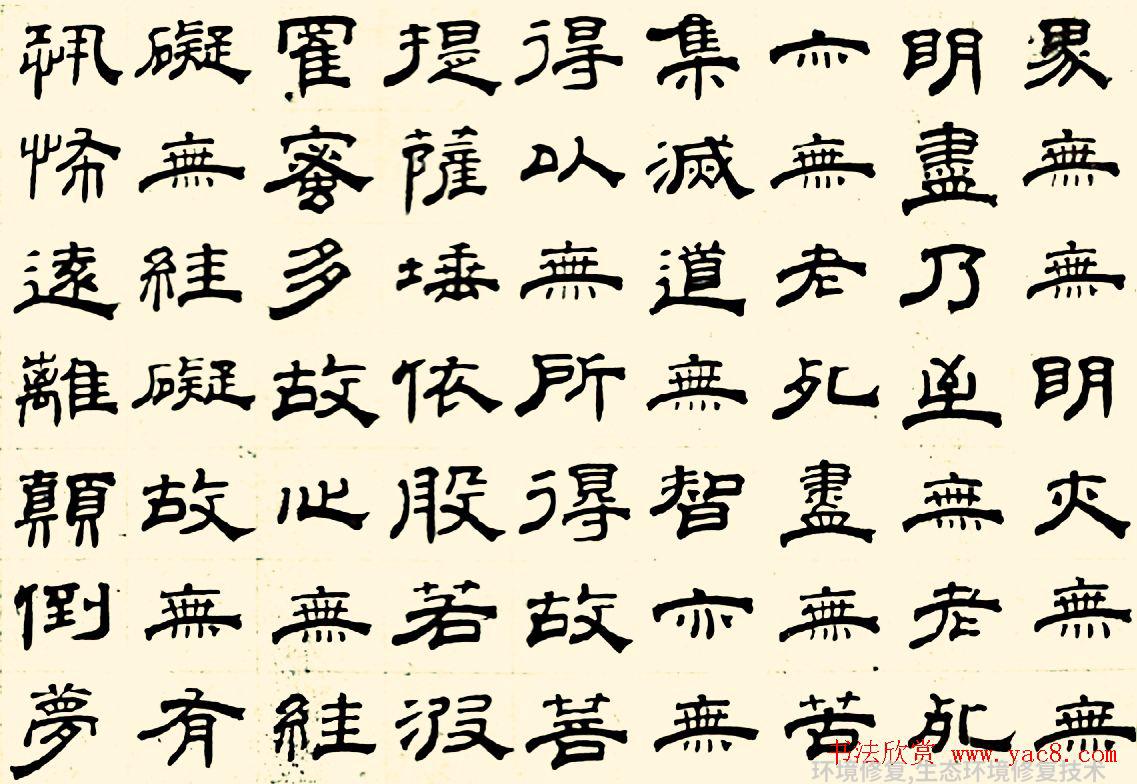 界無無明亦無無
明盡乃至無老死
亦無老死盡無苦
集滅道無智亦無
得以無所得故菩
提薩埵依般若波
羅蜜多故心無絓
礙無絓礙故無有
恐怖遠離顛倒夢
书法欣赏 www.yac8.com
环境修复,生态环境修复技术